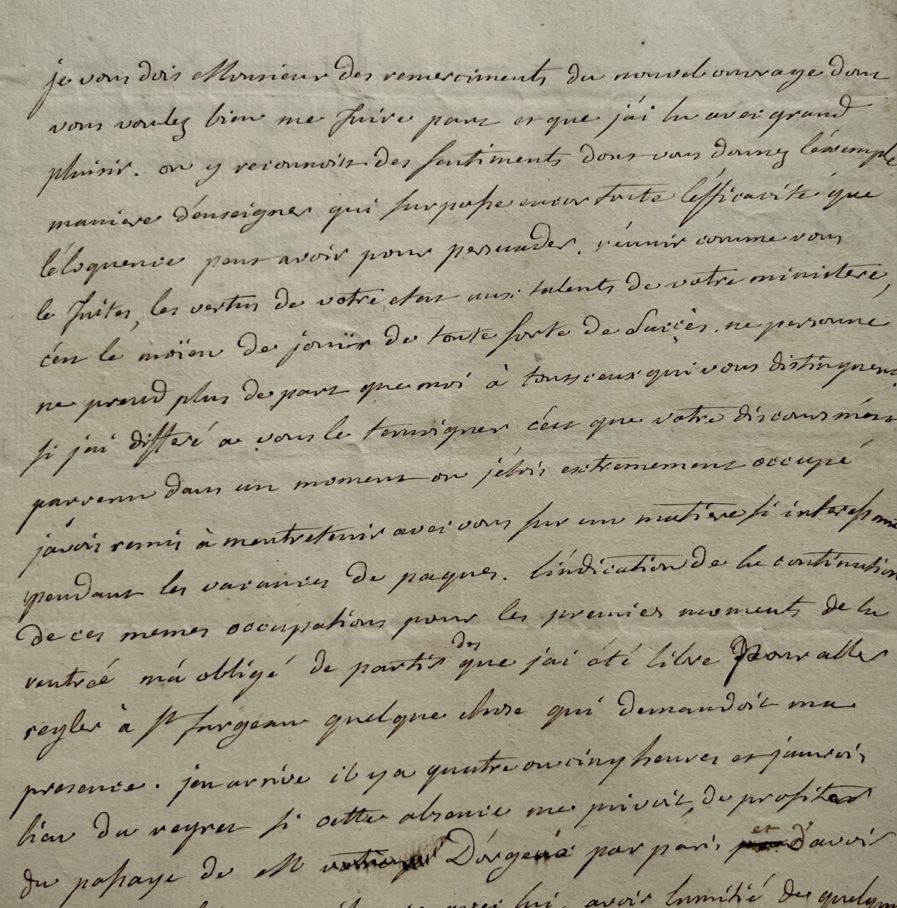 je vous dois Monsieur des remerciments du nouvel ouvrage dont
vous voulez bien me faire part et que j'ai lu avec grand
plaisir. on y reconnoit des sentiments dont vous donnez l'exemple
maniere d'enseigner qui surpasse encor toute l'efficacité que
l'éloquence peut avoir pour persuader. réunir comme vous
le faites, les vertus de votre etat aux talents de votre ministere,
c'est le moïen de jouïr de toute sorte de succès. ne personne
ne prend plus de part que moi à tous ceux qui vous distinguent
si j'ai differé a vous le temoigner c'est que votre discours m'est
parvenu dans un moment ou j'étois extremement occupé
j'avois remis à m'entretenir avec vous sur un matiere si interessante
pendant les vacances de paques. l'indication de la continuation
de ces memes occupations pour les premiers moments de la
rentrée m'a obligé de partir des que j'ai été libre pour aller
regler à St fargeau quelque chose qui demandoit ma
presence. j'en arrive il y a quatre ou cinq heures et j'aurois
lieu du regret si cette absence me privoit, de profiter
du passage de M D'orgeval par paris et d'avoir
avec lui. avoir l'amitié de quelque